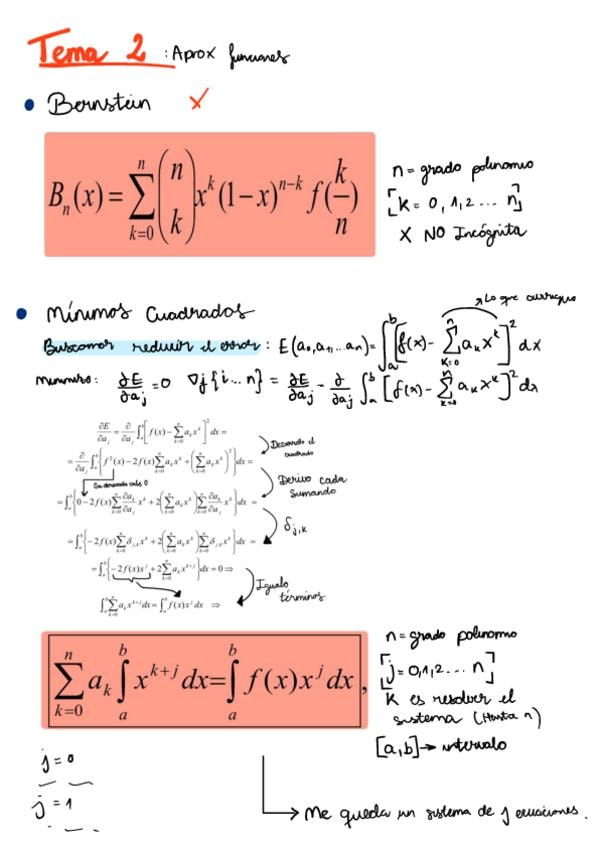 Tema 2 : Aprox funciones
• Bernstein X
B_n(x) = \sum_{k=0}^{n} \binom{n}{k} x^k (1-x)^{n-k} f(\frac{k}{n})
n = grado polinomio
[k = 0, 1, 2 ... n]
X NO Incógnita
• Mínimos Cuadrados
Lo que averiguo
Buscamos reducir el error : E(a_0, a_1, ... a_n) = \int_a^b [f(x) - \sum_{k=0}^{n} a_k x^k]^2 dx
mínimos: \frac{∂E}{∂a_j} = 0 ∇j{i ... n} = \frac{∂E}{∂a_j} - \frac{∂}{∂a_j} \int_a^b [f(x) - \sum_{k=0}^{n} a_k x^k]^2 dx
\frac{∂E}{∂a_j} = \frac{∂}{∂a_j} \int_a^b [f(x) - \sum_{k=0}^{n} a_k x^k]^2 dx =
cuadrado
= \frac{∂}{∂a_j} \int_a^b {f^2(x) - 2f(x) \sum_{k=0}^{n} a_k x^k + (\sum_{k=0}^{n} a_k x^k)^2} dx =
Derivo cada
sumando
Su derivada vale 0
= \int_a^b {0 - 2f(x) \sum_{k=0}^{n} \frac{∂a_k}{∂a_j} x^k + 2(\sum_{k=0}^{n} a_k x^k) \sum_{k=0}^{n} \frac{∂a_k}{∂a_j} x^k} dx =
δ_{j,k}
= \int_a^b {-2f(x) \sum_{k=0}^{n} δ_{j,k} x^k + 2(\sum_{k=0}^{n} a_k x^k) \sum_{k=0}^{n} δ_{j,k} x^k} dx =
= \int_a^b {-2f(x)x^j + 2\sum_{k=0}^{n} a_k x^{k+j}} dx = 0 ⇒
Igualo
términos
\int_a^b \sum_{k=0}^{n} a_k x^{k+j} dx = \int_a^b f(x)x^j dx ⇒
\sum_{k=0}^{n} a_k \int_a^b x^{k+j} dx = \int_a^b f(x) x^j dx ,
n = grado polinomio
[j = 0,1,2 ... n]
K es resolver el
sistema (Hasta n)
[a,b] → intervalo
j = 0
j = 1
Me queda un sistema de j ecuaciones.